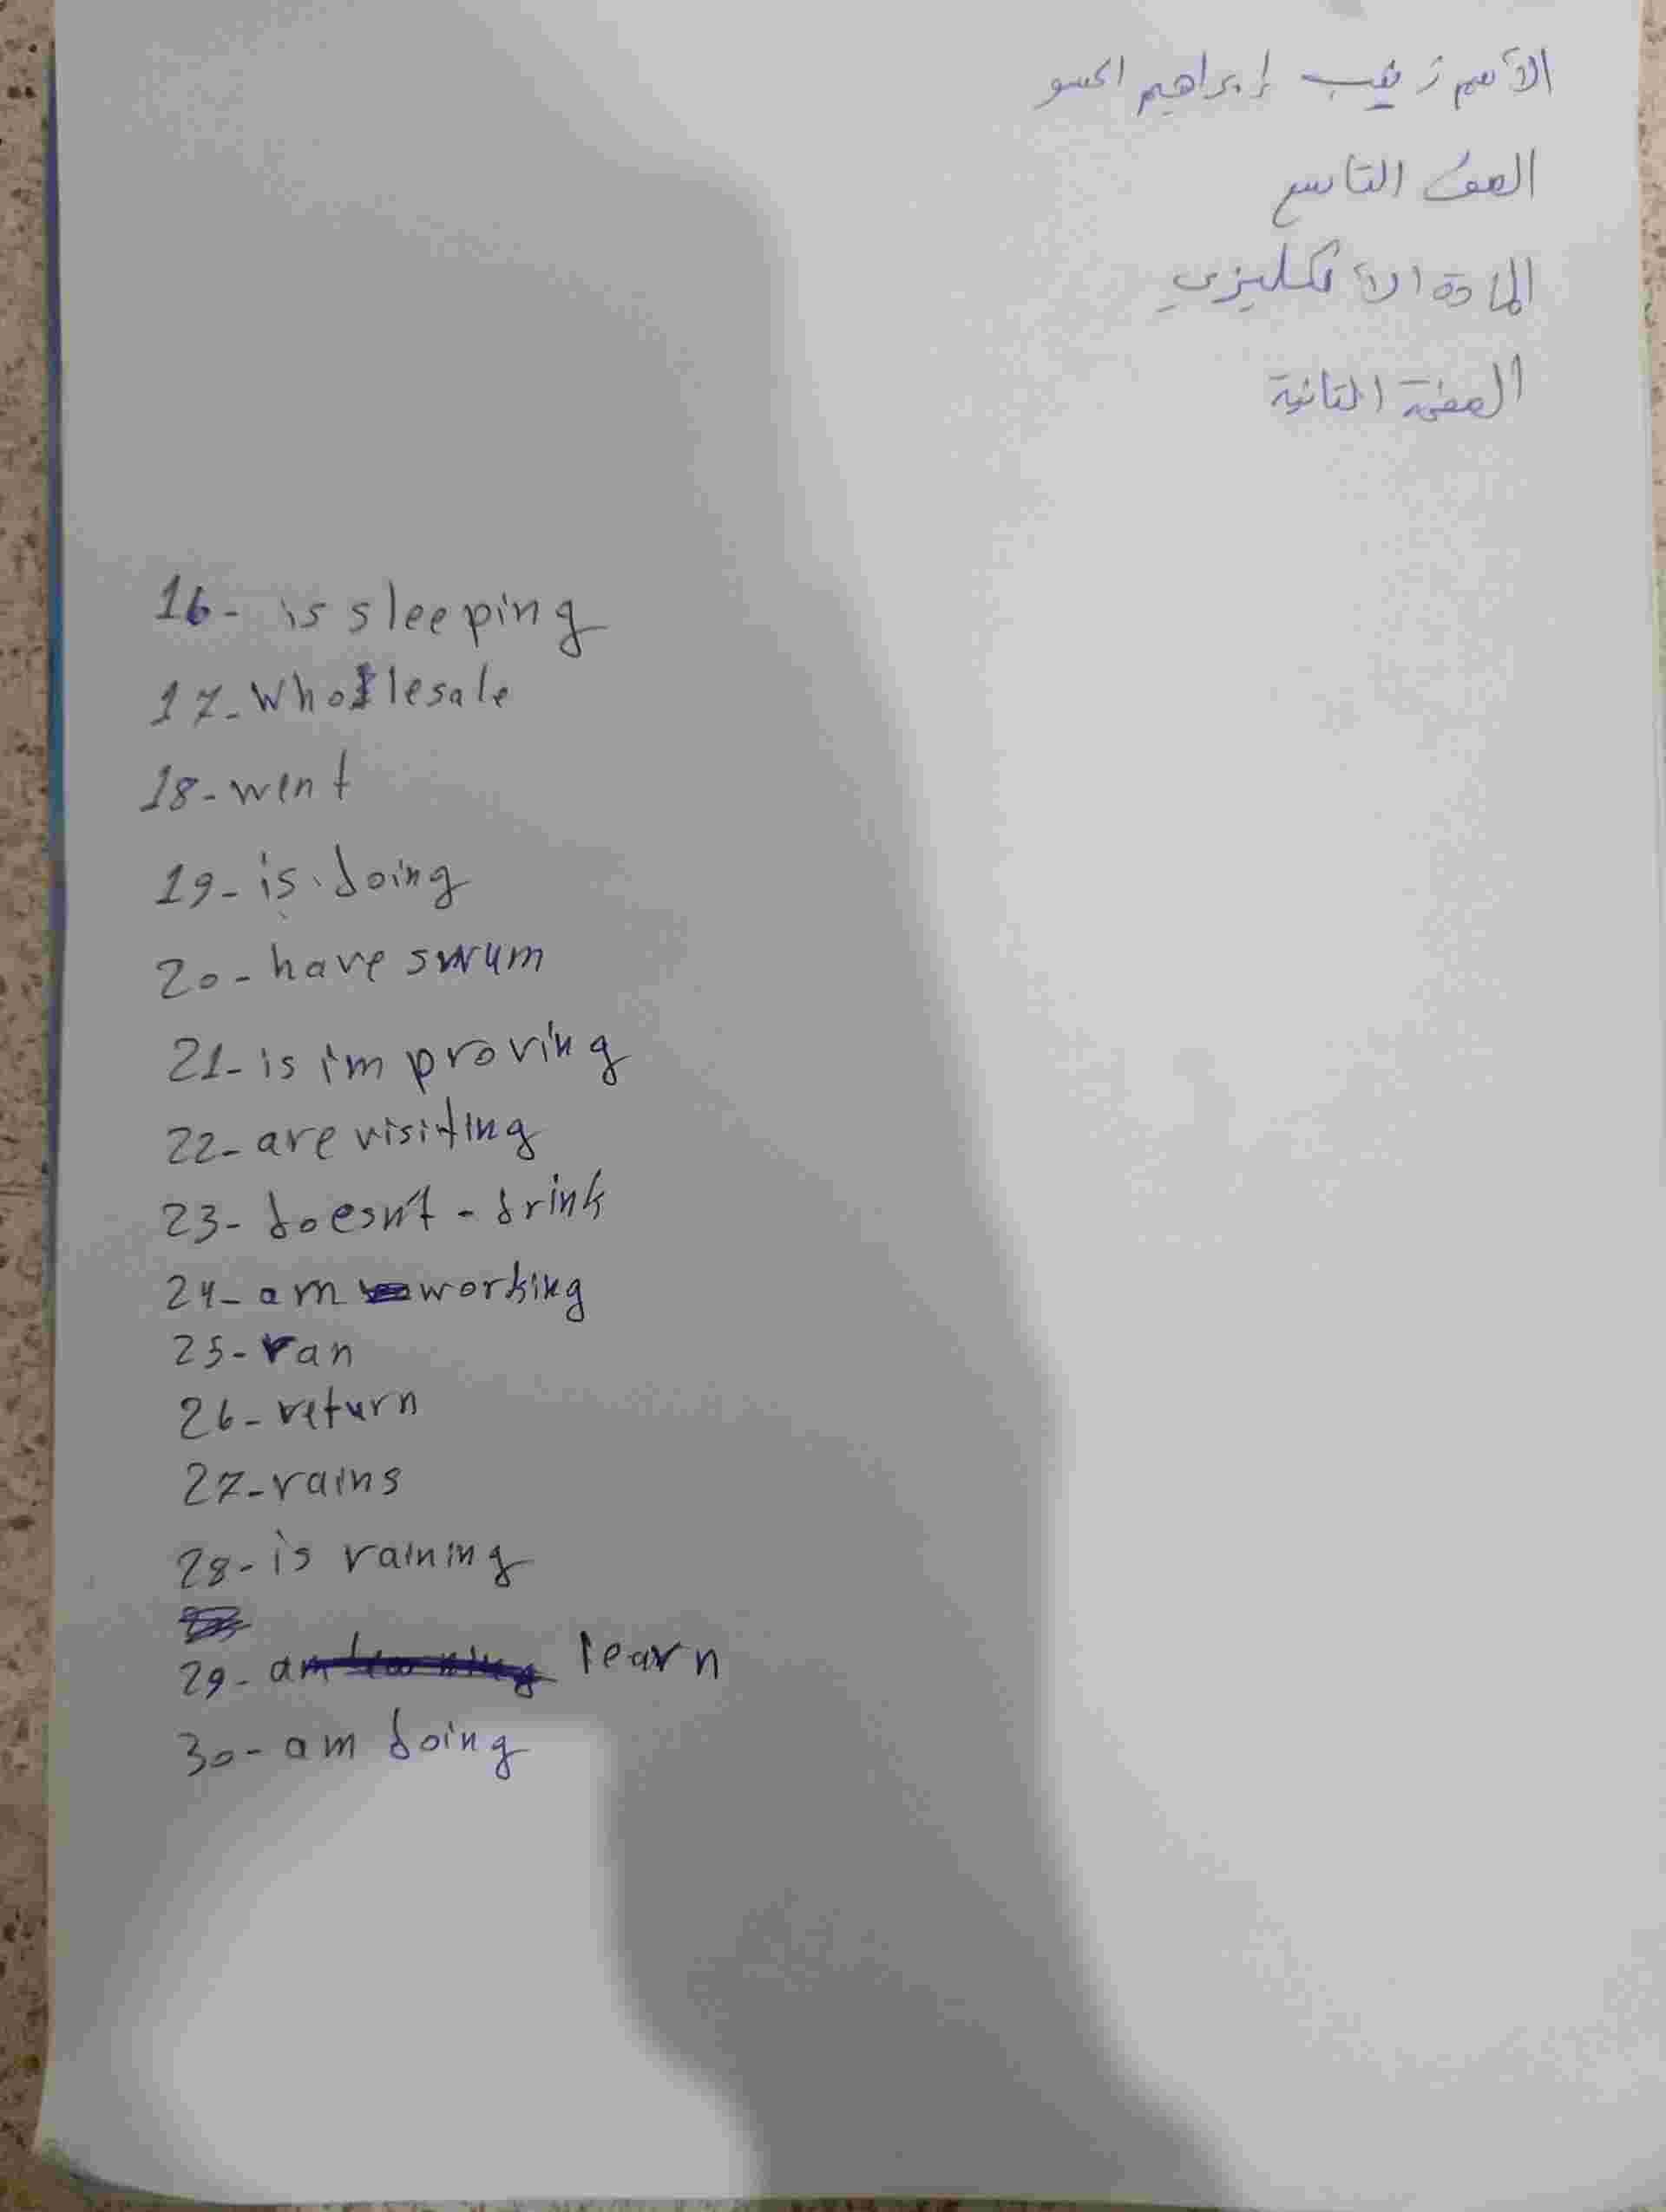 الأسم زينب إبراهيم الحسو
الصف التاسع
المادة الأنكليزي
الصفحة الثانية
16- is sleeping
17- Wholesale
18- went
19- is doing
20- have swum
21- is improving
22- are visiting
23- doesn't - drink
24- am working
25- ran
26- return
27- rains
28- is raining
29- learn
30- am doing